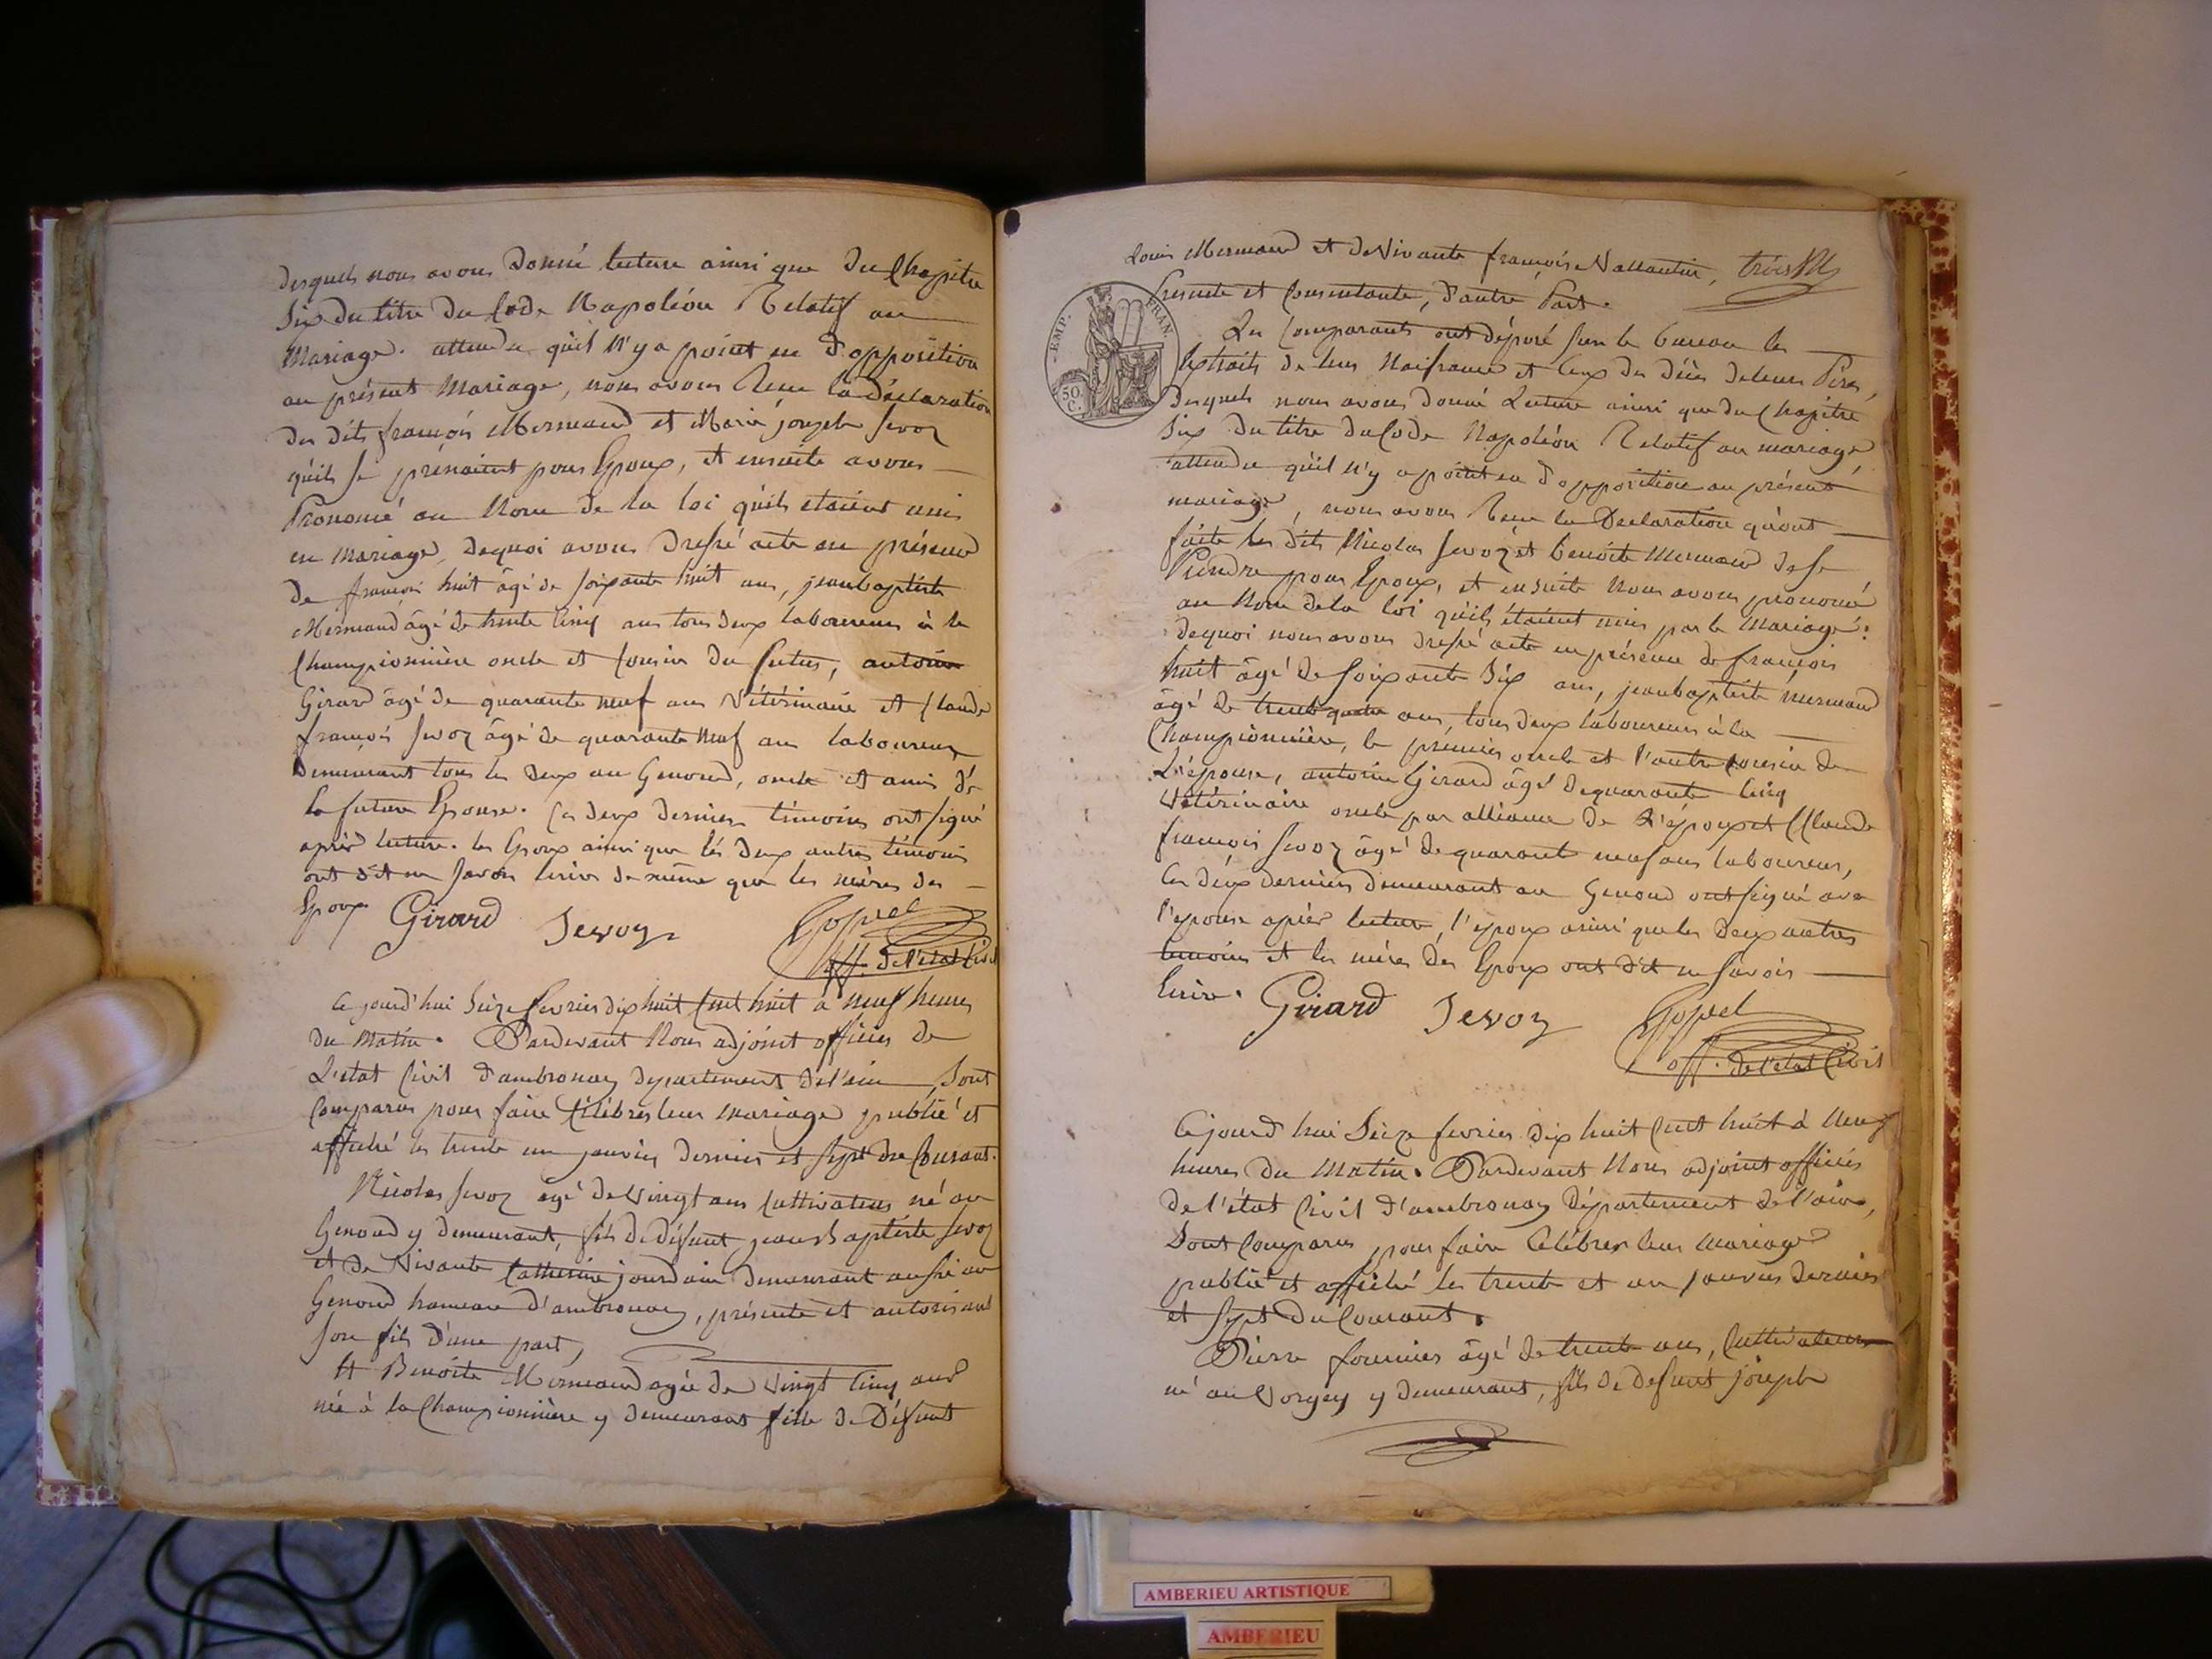 desquels nous avons donné lecture ainsi que du Chapitre
Six du titre du Code Napoléon Relatif au
Mariage. attendu qu'il N'y a point eu d'opposition
au présent Mariage, nous avons Reçu la déclaration
des dits françois Mermand et Marie joseph Sevoz
qu'ils se prénoient pour Epoux, et ensuite avons
Prononcé au Nom de la loi qu'ils etoient unis
en mariage, dequoi avons Dressé acte en présence
de françois huit âgé de soixante huit ans, jeanbaptiste
Mermand âgé de trente Cinq ans tous deux laboureurs à la
Championnière oncle et Cousin du futur, antoine
Girard âgé de quarante neuf ans Vétérinaire et Claude
françois Sevoz âgé de quarante Neuf ans laboureur
Demeurant tous les deux au Genoud, oncle et ami de
la future Epouse. Ces deux derniers témoins ont signé
après lecture. les Epoux ainsi que lés deux autres témoins
ont dit ne savoir écrire de même que les mères des
Epoux Girard Sevoz
off. de l'état Civil
Ce jourd'hui Seize fevrier dix huit Cent huit à neuf heures
du Matin. Pardevant Nous adjoint officier de
L'etat Civil d'ambronay département de l'ain Sont
Comparus pour faire Célébrer leur mariage publié et
affiché les trente un janvier dernier et sept du Courant.
Nicolas Sevoz âgé de vingt ans Cultivateur né au
Genoud y demeurant, fils de Défunt jean Baptiste Sevoz
et de Vivante Catherine jourdain demeurant aussi au
Genoud hameau d'ambronay, présente et autorisant
son fils d'une part,
Et Benoite Mermand agée de Vingt Cinq ans
née à la Championnière y demeurant fille de Défunt
Louis Mermand et de Vivante françoise Vallantin,
Présente et Consentante, d'autre Part.
EMP. FRAN.
50 C.
Les Comparants ont déposé sur le bureau les
Extraits de leur Naissance et Ceux des décès de leurs Pères,
desquels nous avons donné Lecture ainsi que du Chapitre
Six du titre du Code Napoléon Relatif au mariage
attendu qu'il N'y a point eu d'opposition au présent
mariage, nous avons Reçu la Declaration qu'ont
faite les dits Nicolas Sevoz et benoite Mermand de se
Prendre pour Epoux, et ensuite Nous avons prononcé
au Nom de la loi qu'ils étaient unis par le Mariage:
dequoi nous avons dressé acte en présence de françois
huit âgé de soixante Six ans, jeanbaptiste mermand
âgé de trente quatre ans, tous deux laboureurs à la
Championnière, le prémier oncle et l'autre Cousin de
L'épouse, antoine Girard âgé de quarante Cinq
Vétérinaire oncle par alliance de L'époux et Claude
françois Sevoz âgé de quarante neuf ans laboureur,
les deux derniers demeurant au Genoud ont signé avec
l'epouse après lecture, l'epoux ainsi que les deux autres
temoins et les mères des Epoux ont dit ne savoir
Ecrire. Girard Sevoz
off. de l'etat Civil
Ce jourd'hui Seize fevrier dix huit Cent huit à Neuf
heures du Matin. Pardevant Nous adjoint officier
de l'état Civil d'ambronay Département de l'ain,
Sont Comparus pour faire Célébrer leur Mariage
publié et affiché les trente et un janvier dernier
et sept du Courant.
Pierre fournier âgé de trente ans, Cultivateur
né au Vorgey y demeurant, fils de defunt joseph
AMBERIEU ARTISTIQUE
AMBERIEU